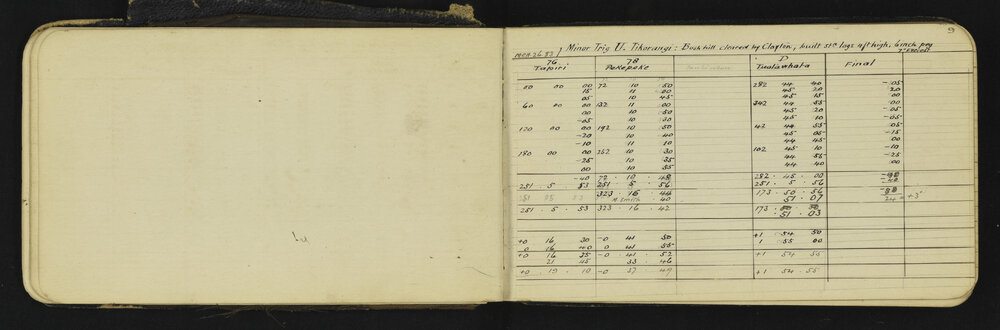 9
Minor Trig U. Tikorangi: Bush hill cleared by Clayton, built stn logs 4ft high, 6 inch peg
76 78 D Final
Tapiri Pokepoke Tuatawhata
00 00 00 72 10 50 282 44 40 -05
15 11 00 45 20 20
05 10 45 45 15 00
60 00 00 132 11 00 342 44 55 00
00 10 50 45 20 -05
-05 10 50 45 10 -05
120 00 00 192 10 50 42 44 55 05
-20 10 40 45 05 -15
-10 11 10 44 45 00
180 00 00 252 10 30 102 45 10 -10
-25 10 35 44 55 -25
00 10 55 44 40 00
-40 72 · 10 · 48 282 · 45 · 00
251 · 5 · 53 251 · 5 · 56 251 · 5 · 56
323 · 16 · 44 173 · 50 · 56
A. Smith · 40 51 · 07 24 = +3"
251 · 5 · 53 323 · 16 · 42 173 ·
51 · 03
+0 16 30 -0 41 50 +1 54 50
0 16 40 0 41 55 1 55 00
+0 16 35 -0 41 · 52 +1 54 55
21 45 33 · 46
+0 · 19 · 10 -0 37 · 49 +1 · 54 · 55